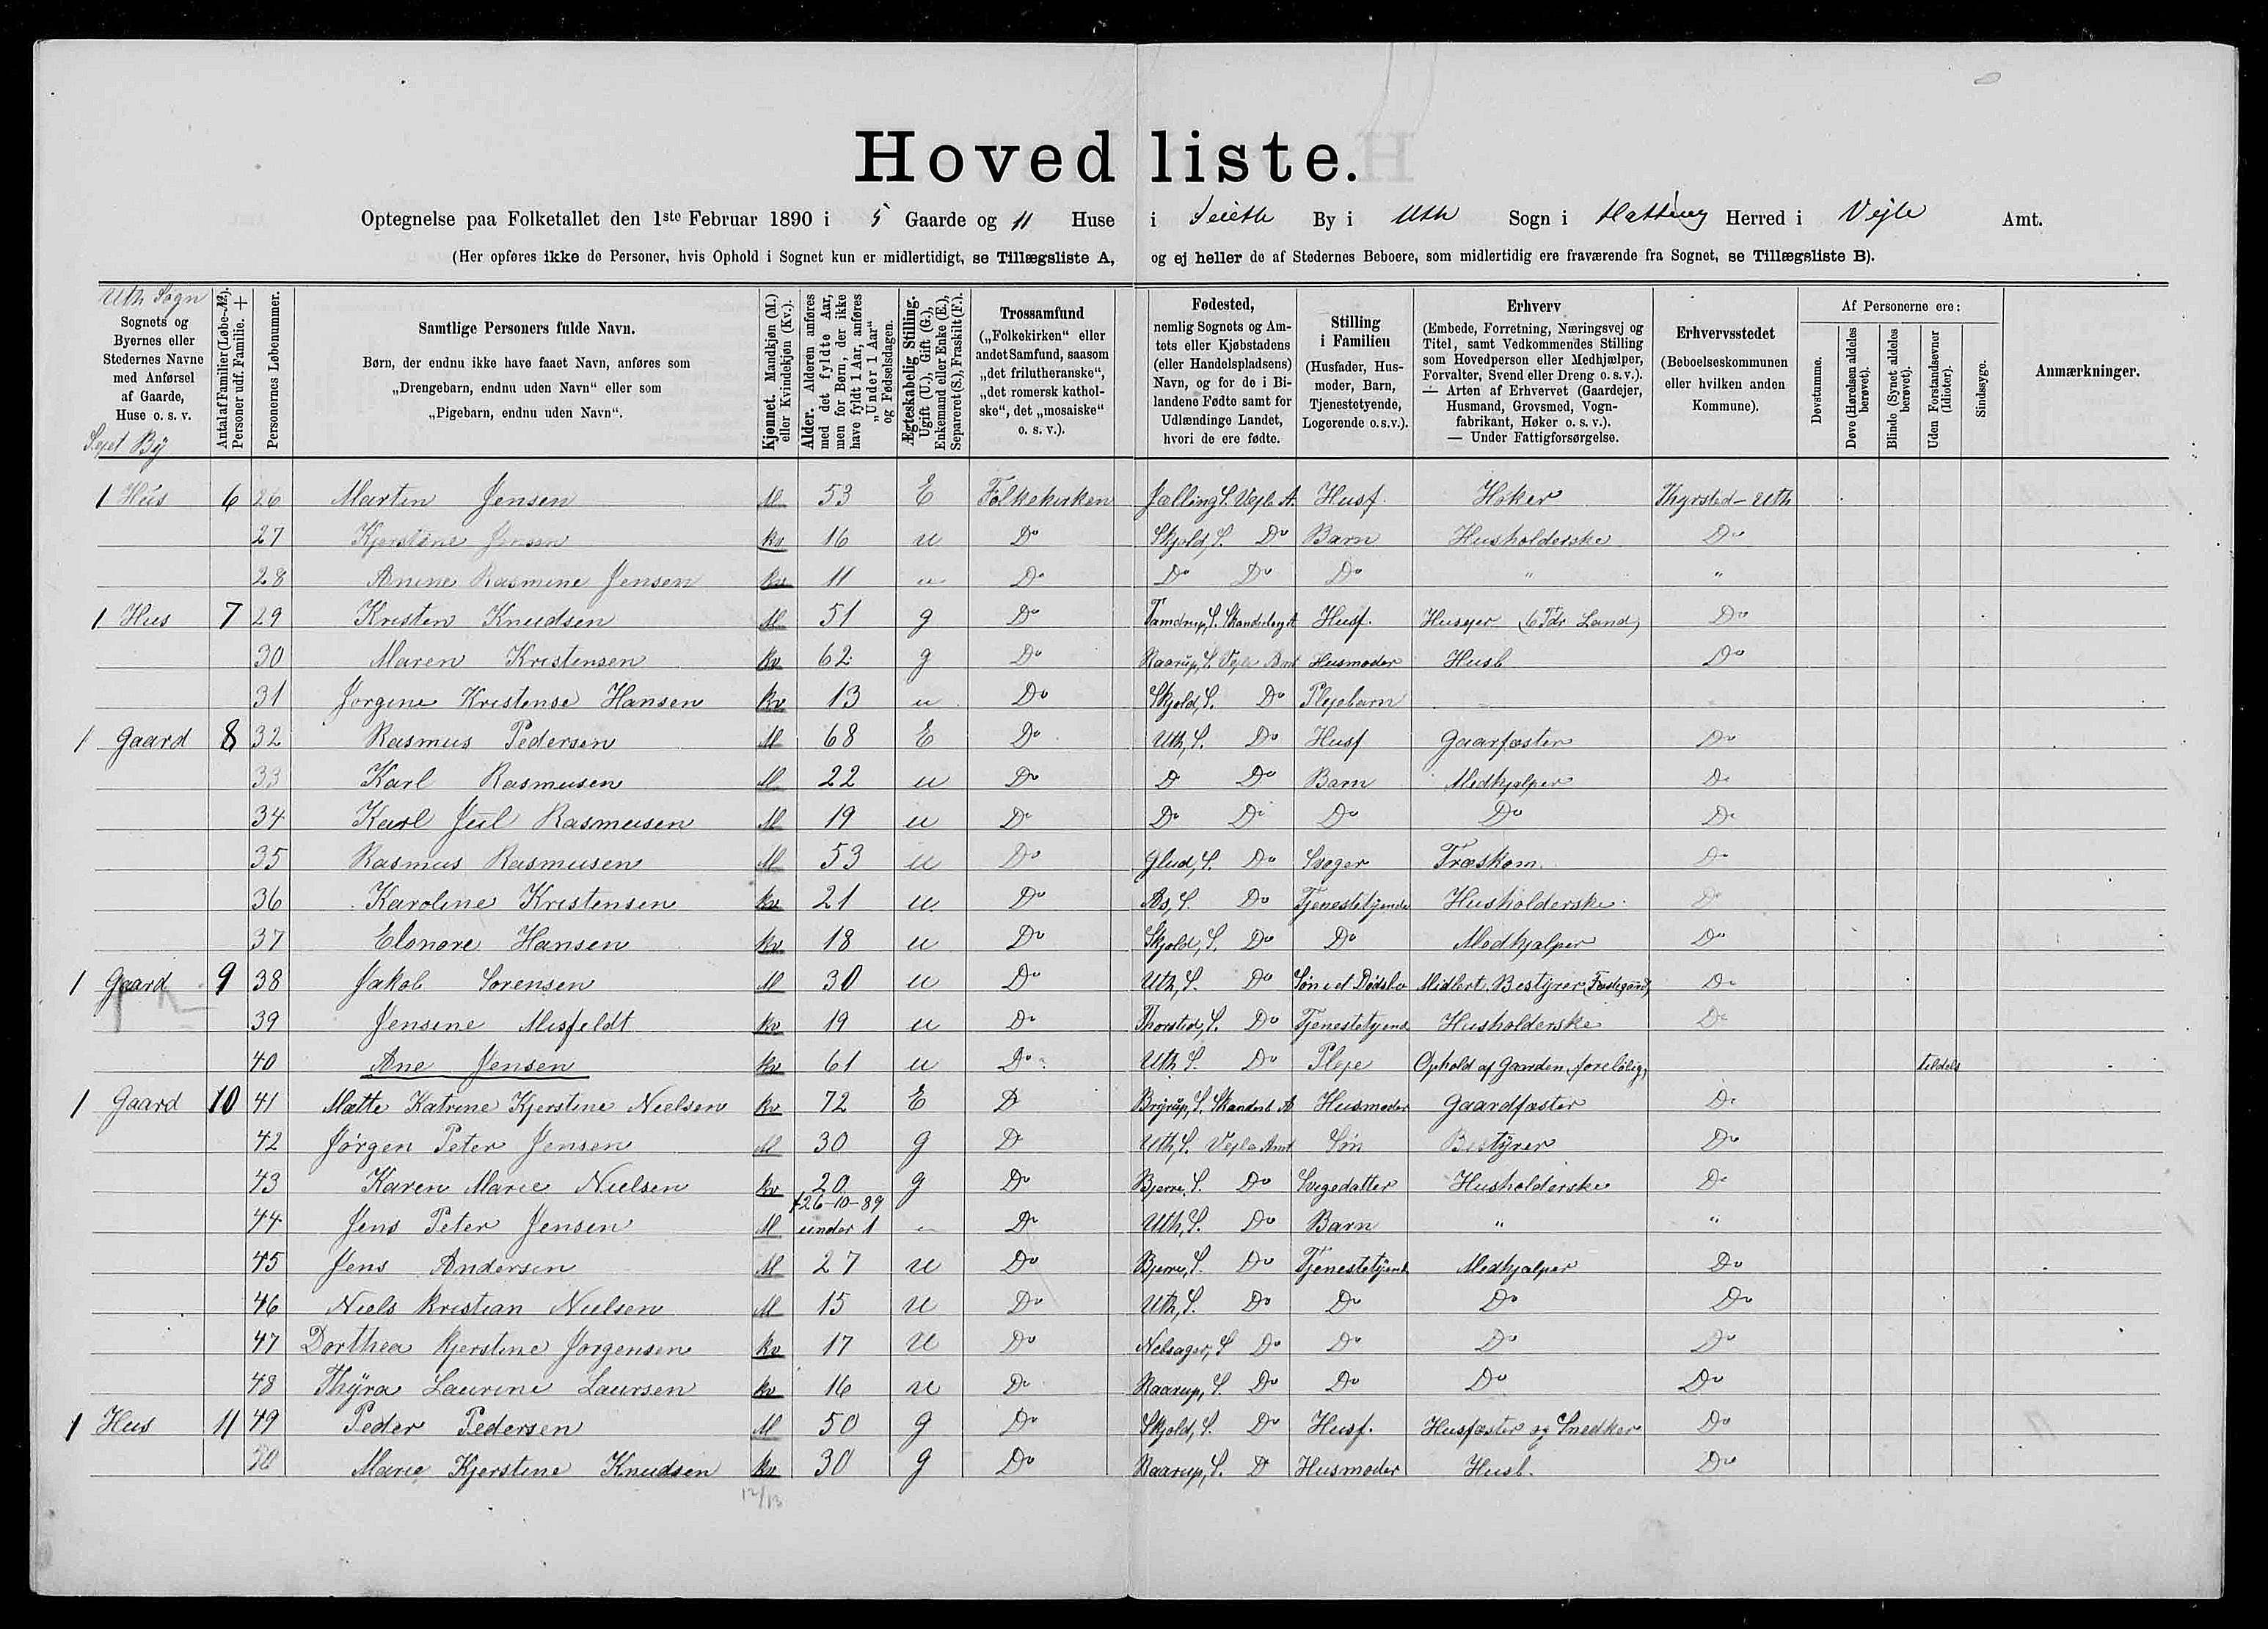 Hovedliste.
Optegnelse paa Folketallet den 1ste Februar 1890 i 5 Gaarde og 11 Huse i Seieth By i Uth Sogn i Hatting Herred i Vejle Amt.
(Her opføres ikke de Personer, hvis Ophold i Sognet kun er midlertidigt, se Tillægsliste A, og ej heller de af Stedernes Beboere, som midlertidig ere fraværende fra Sognet, se Tillægsliste B).
Uth Sogn
Sognets og Byernes eller Stedernes Navne med Anførsel af Gaarde, Huse o. s. v.
Sejet By
Antal af Familier (Løbe-№). Personer udf. Familie. +
Personernes Løbenummer.
Samtlige Personers fulde Navn.
Børn, der endnu ikke have faaet Navn, anføres som „Drengebarn, endnu uden Navn“ eller som „Pigebarn, endnu uden Navn“.
Kjønnet. Mandkjøn (M.) eller Kvindekjøn (Kv.).
Alder. Alderen anføres med det fyldte Aar, men for Børn, der ikke have fyldt 1 Aar, anføres „Under 1 Aar“ og Fødselsdagen.
Ægteskabelig Stilling. Ugift (U.), Gift (G.), Enkemand eller Enke (E.), Separeret (S.), Fraskilt (F.).
Trossamfund („Folkekirken“ eller andet Samfund, saasom „det frilutheranske“, „det romersk katholske“, det „mosaiske“ o. s. v.).
Fødested, nemlig Sognets og Amtets eller Kjøbstadens (eller Handelspladsens) Navn, og for de i Bilandene Fødte samt for Udlændinge Landet, hvori de ere fødte.
Stilling i Familien (Husfader, Husmoder, Barn, Tjenestetyende, Logerende o.s.v.).
Erhverv (Embede, Forretning, Næringsvej og Titel, samt Vedkommendes Stilling som Hovedperson eller Medhjælper, Forvalter, Svend eller Dreng o. s. v.). — Arten af Erhvervet (Gaardejer, Husmand, Grovsmed, Vognfabrikant, Høker o. s. v.). — Under Fattigforsørgelse.
Erhvervsstedet (Beboelseskommunen eller hvilken anden Kommune).
Af Personerne ere:
Døvstumme.
Døve (Hørelsen aldeles berøvet).
Blinde (Synet aldeles berøvet).
Uden Forstandsevner (Idioter).
Sindssyge.
Anmærkninger.
1 Hus 6 26 Martin Jensen M 53 E Folkekirken Jælling S. Vejle A. Husf. Høker Thyrsted-Uth
27 Kjerstine Jensen Kv 16 u Do Skjold, S. Do Barn Husholderske Do
28 Anine Rasmine Jensen Kv 11 u Do Do Do Do " "
1 Hus 7 29 Kristen Knudsen M 51 g Do Tamdrup, S. Husf. Husejer (6 Tdr Land) Do
30 Maren Kristensen Kv 62 g Do Raarup, S. Vejle Amt Husmoder Husb Do
31 Jørgine Kristense Hansen Kv 13 u Do Skjold, S. Do Plejebarn
1 Gaard 8 32 Rasmus Pedersen M 68 E Do Uth, S. Do Husf Gaarfæster Do
33 Karl Rasmusen M 22 u Do D Do Barn Medhjælper Do
34 Karl Jul Rasmusen M 19 u Do Do Do Do Do Do
35 Rasmus Rasmusen M 53 u Do Glud, S. Do Svoger Træskom. Do
36 Karoline Kristensen Kv 21 u Do As, S. Do Tjenestetyende Husholderske Do
37 Elonore Hansen Kv 18 u Do Skjold, S. Do Do Medhjælper Do
1 Gaard 9 38 Jakob Sørensen M 30 u Do Uth, S. Do Søn i et Dødsbo Midlert. Bestyrer (Fæstegaard) Do
39 Jensine Misfeldt Kv 19 u Do Thorsted, S. Do Tjenestetyend Husholderske Do
40 Ane Jensen Kv 61 u Do Uth S. Do Pleje Ophold af Gaarden, foreløbig, tildels
1 Gaard 10 41 Mætte Katrine Kjerstine Nielsen Kv 72 E D Bryrup, S. Skanderb A Husmoder Gaardfæster Do
42 Jørgen Peter Jensen M 30 g D Uth, S. Vejle Amt Søn Bestyrer Do
43 Karen Marie Nielsen Kv 20 g Do Bjerre, S. Do Svigedatter Husholderske Do
44 Jens Peter Jensen M 26-10-89 under 1 Do Uth, S. Do Barn " "
45 Jens Andersen M 27 u Do Bjerre, S. Do Tjenestetyend Medhjælper Do
46 Niels Kristian Nielsen M 15 u Do Uth, S. Do Do Do Do
47 Dorthea Kjerstine Jørgensen Kv 17 u Do Nebsager, S Do Do Do Do
48 Thyra Laurine Laursen Kv 16 u Do Raarup, S. Do Do Do Do
1 Hus 11 49 Peder Pedersen M 50 g Do Skjold, S. Do Husf. Husfæster og Snedker Do
50 Marie Kjerstine Knudsen Kv 30 g Do Raarup, S. D Husmoder Husb. Do
12/13